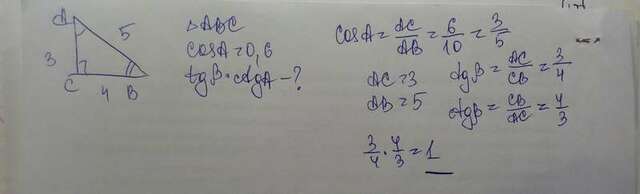 A
5
3
C
4
B
△ABC
cosA=0,6
tgB·ctgA-?
cosA=AC/AB=6/10=3/5
AC=3
AB=5
tgB=AC/CB=3/4
ctgB=CB/AC=4/3
3/4·4/3=1